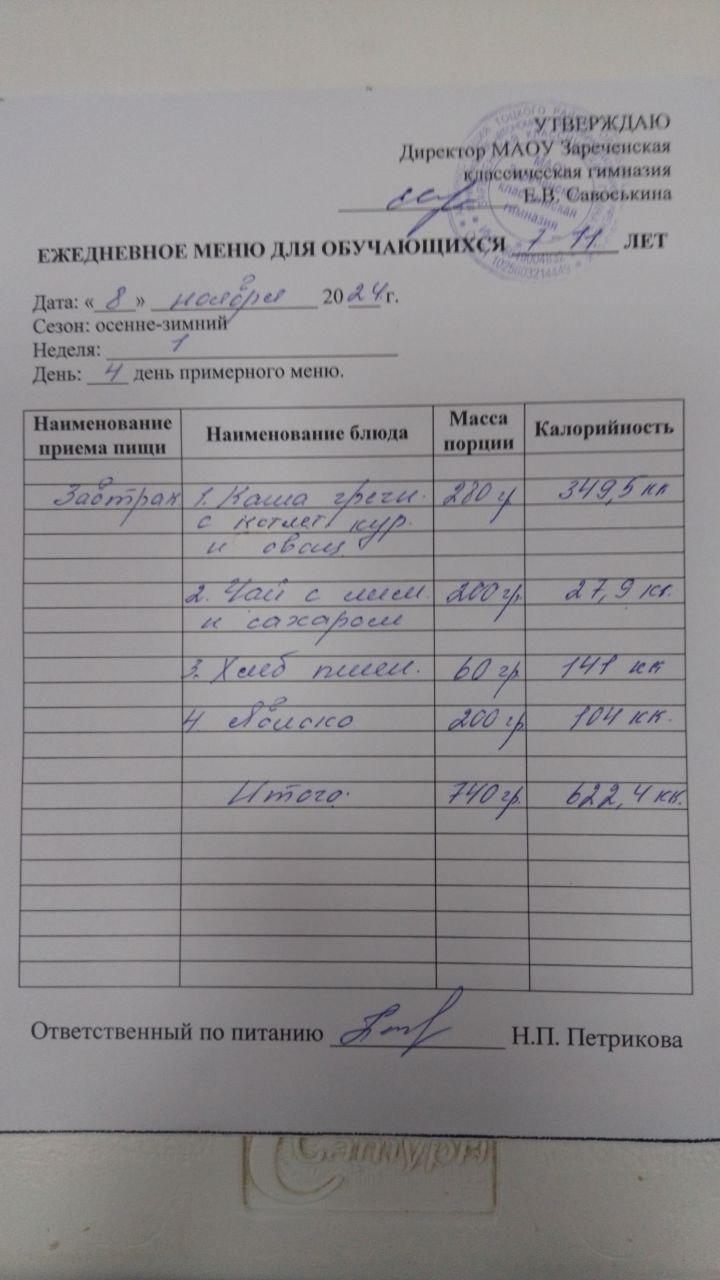 УТВЕРЖДАЮ
Директор МАОУ Зареченская
классическая гимназия
Е.В. Савоськина
ЕЖЕДНЕВНОЕ МЕНЮ ДЛЯ ОБУЧАЮЩИХСЯ 7-11 ЛЕТ
Дата: «8» ноября 2024 г.
Сезон: осенне-зимний
Неделя: 1
День: 4 день примерного меню.
Наименование приема пищи Наименование блюда Масса порции Калорийность
Завтрак 1. Каша гречн. 280 гр 349,5 кк
с котлет кур.
и овощ
2. Чай с лим. 200 гр. 27,9 кк.
и сахаром
3. Хлеб пшен. 60 гр 141 кк
4. Яблоко 200 гр 104 кк.
Итого. 740 гр. 622,4 кк.
Ответственный по питанию Н.П. Петрикова
Сатурн